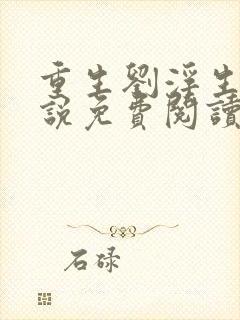 重生劉淫生
說免費閱讀
石碌